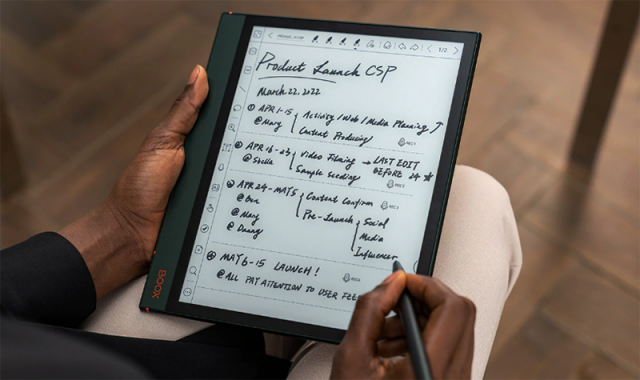 1/2
Product Launch CSP
March 22, 2022
① APR 1-15 { Activity / Web / Media Planning
@Mary Content Producing
REC 1
② APR 16-23 { Video Filming → LAST EDIT
@Stella Sample Seeding BEFORE 24 ★
REC 2
③ APR 24-MAY 5 { Content Confirm
REC 3
@Ben
@Mary Pre-Launch { Social
@Danny Media
Influencer
④ MAY 6-15 LAUNCH!
@ALL PAY ATTENTION TO USER FEE
BOOX